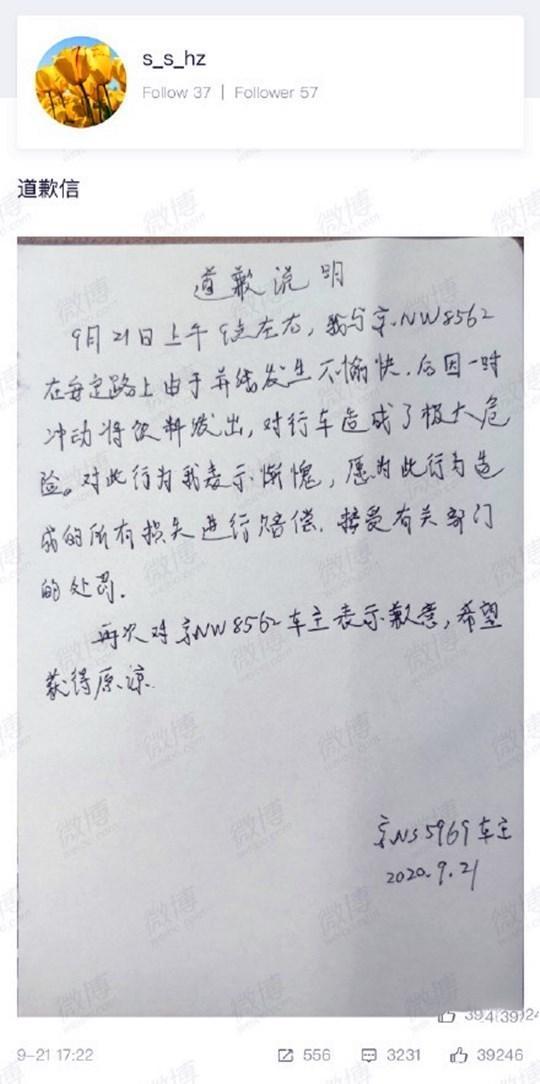 s_s_hz
Follow 37 | Follower 57
道歉信
道歉说明
9月21日上午9点左右，我与京·NW8562
在安定路上由于并线发生不愉快.后因一时
冲动将饮料发出，对行车造成了极大危
险。对此行为我表示惭愧，愿为此行为造
成的所有损失进行赔偿.接受有关部门
的处罚.
再次对京NW8562车主表示歉意，希望
获得原谅.
京NS5969车主
2020.9.21
9-21 17:22
556
3231
39246